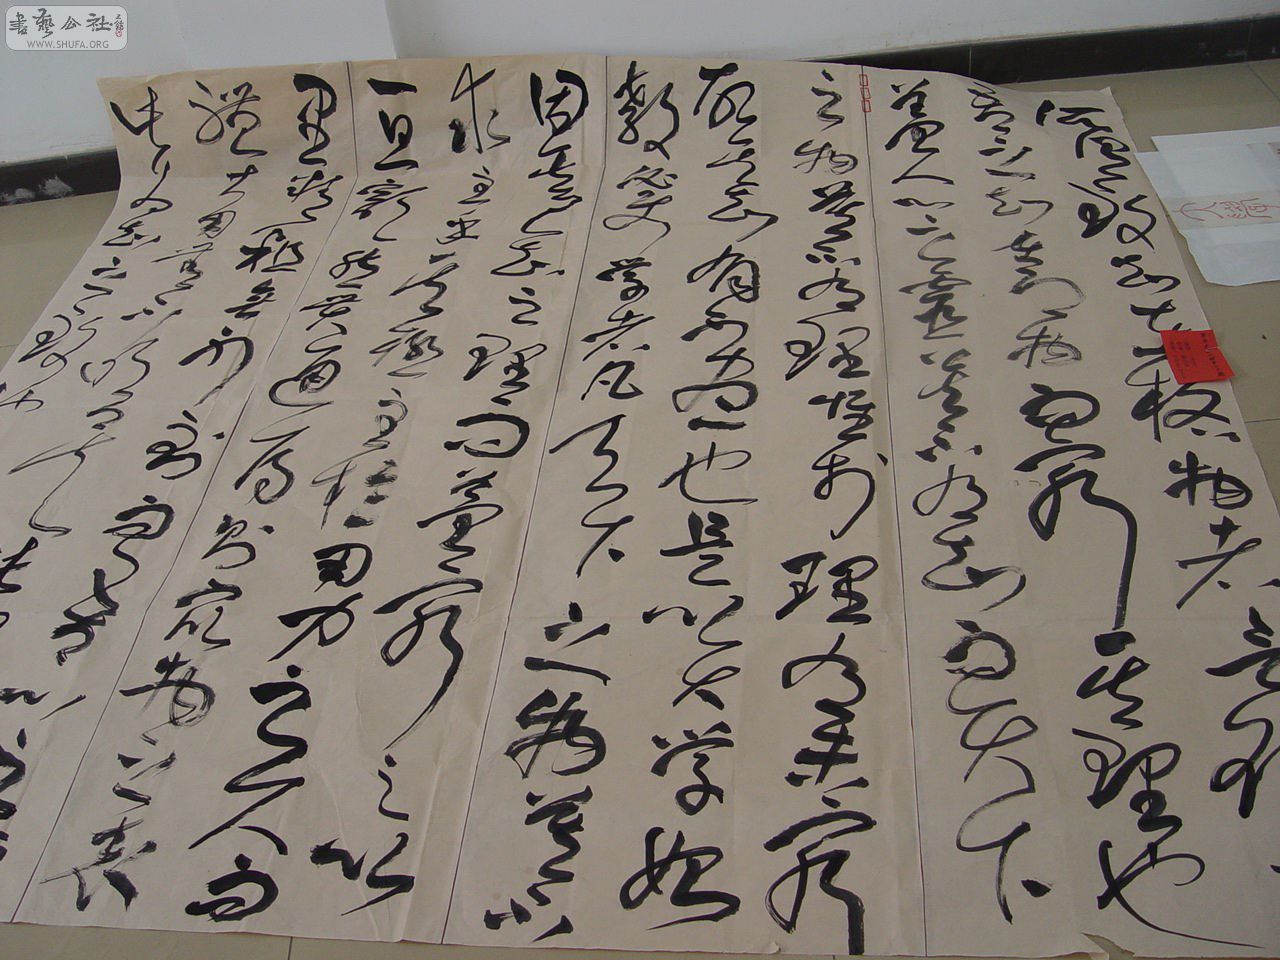 書藝公社
WWW.SHUFA.ORG
所謂致知在格物者言欲
吾之知在即物而窮其理也
蓋人心之靈莫不有知而天下
之物莫不有理惟於理有未窮
故其知有不盡也是以大學始
教必使學者凡天下之物莫不
因其已知之理而益窮之以
求至乎其極至於用力之久而
一旦豁然貫通焉則衆物之表
裏精粗無不到而吾心
體大用無不明矣
此謂知之至也